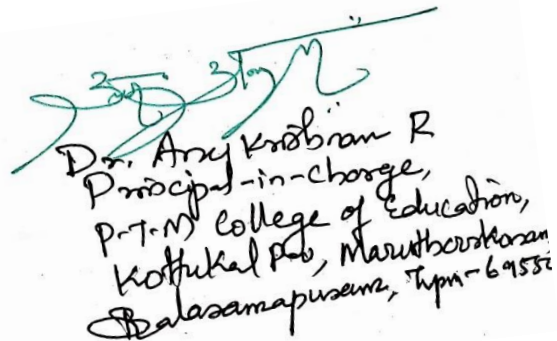 Dr. Any Krishnan R
Principal-in-charge,
P.T.M College of Education,
Kottukal P.O, Maruthoorkonam
Balaramapuram, Tvpm-69550